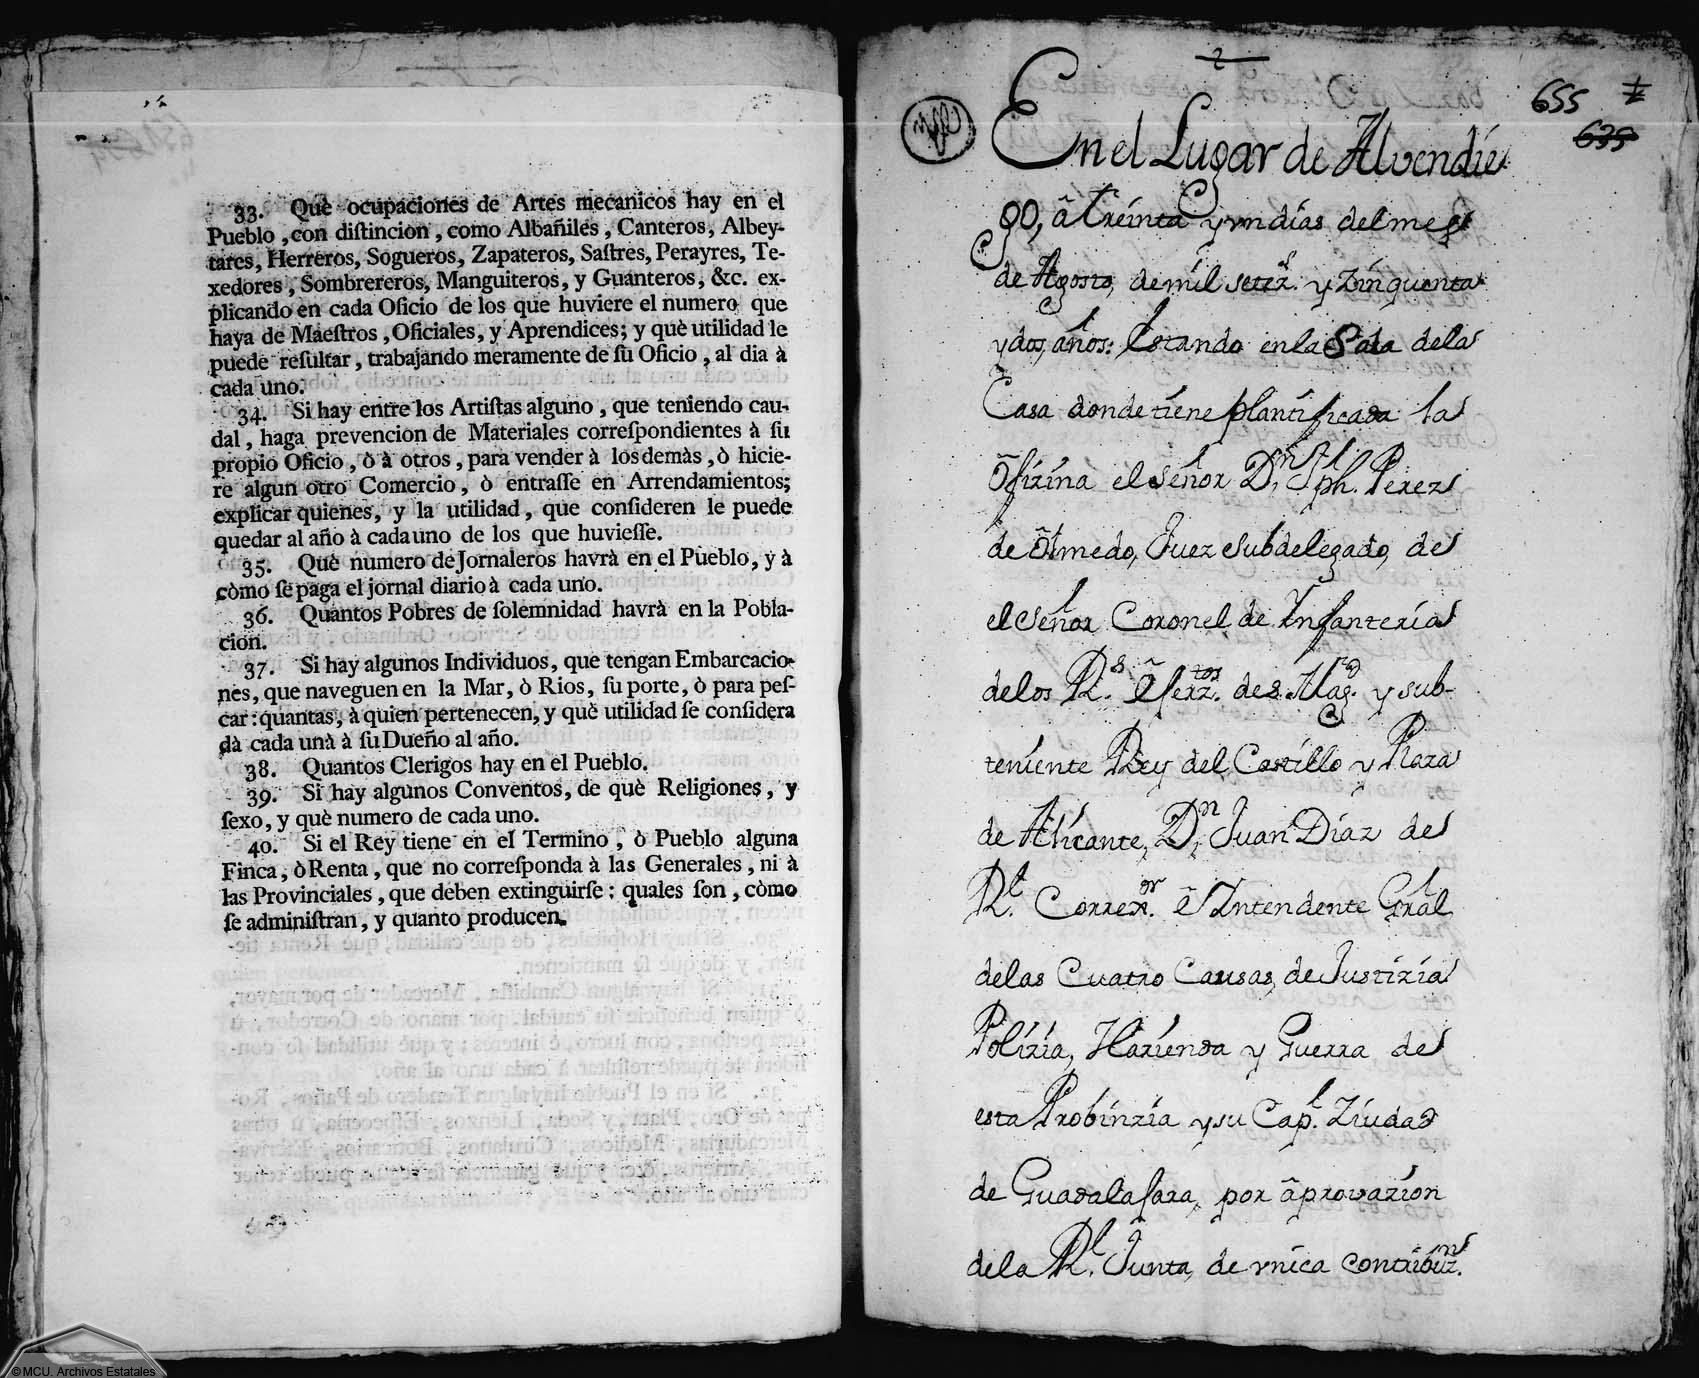 33. Què ocupaciones de Artes mecanicos hay en el
Pueblo, con diſtincion, como Albañiles, Canteros, Albey-
tares, Herreros, Sogueros, Zapateros, Saſtres, Perayres, Te-
xedores, Sombrereros, Manguiteros, y Guanteros, &c. ex-
plicando en cada Oficio de los que huviere el numero que
haya de Maeſtros, Oficiales, y Aprendices; y què utilidad le
puede reſultar, trabajando meramente de ſu Oficio, al dia à
cada uno.
34. Si hay entre los Artiſtas alguno, que teniendo cau-
dal, haga prevencion de Materiales correſpondientes à ſu
propio Oficio, ò à otros, para vender à los demàs, ò hicie-
re algun otro Comercio, ò entraſſe en Arrendamientos;
explicar quienes, y la utilidad, que conſideren le puede
quedar al año à cada uno de los que huvieſſe.
35. Què numero de Jornaleros havrà en el Pueblo, y à
còmo ſe paga el jornal diario à cada uno.
36. Quantos Pobres de ſolemnidad havrà en la Pobla-
cion.
37. Si hay algunos Individuos, que tengan Embarcacio-
nes, que naveguen en la Mar, ò Rios, ſu porte, ò para peſ-
car: quantas, à quien pertenecen, y què utilidad ſe conſidera
dà cada unà à ſu Dueño al año.
38. Quantos Clerigos hay en el Pueblo.
39. Si hay algunos Conventos, de què Religiones, y
ſexo, y què numero de cada uno.
40. Si el Rey tiene en el Termino, ò Pueblo alguna
Finca, ò Renta, que no correſponda à las Generales, ni à
las Provinciales, que deben extinguirſe: quales ſon, còmo
ſe adminiſtran, y quanto producen.
2
655
635
En el Lugar de Alvendie
go, â treinta y un dias del mes
de Agosto, de mil setez.s y zinquenta
y dos, años: Estando en la Sala dela
Casa donde tiene plantificada la
Ofizina el Señor D.n Jph. Perez
de Olmedo, Juez subdelegado, de
el Señor Coronel de Ynfanteria
delos R.s Exerz.tos de S. Mag.d y sub-
teniente Rey del Castillo y Plaza
de Alicante, D.n Juan Diaz de
R.l Correx.or ê Yntendente Gral
delas Cuatro Causas, de Justizia
Polizia, Hazienda y Guerra de
esta Probinzia y su Cap.l Ziudad
de Guadalajara, por âprovazion
dela R.l Junta, de vnica contribuz.n
© MCU. Archivos Estatales